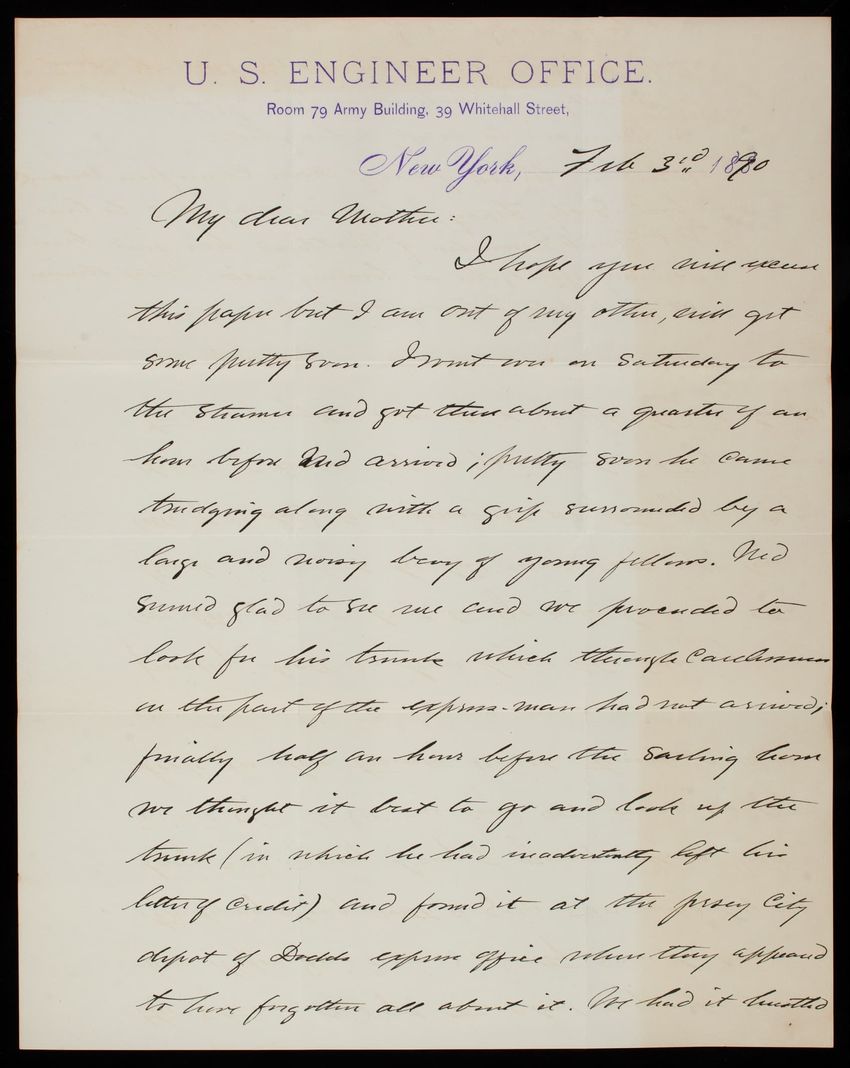 U. S. ENGINEER OFFICE.
Room 79 Army Building, 39 Whitehall Street,
New York, Feb 3rd 1890
My dear Mother:
I hope you will excuse
this paper but I am out of my other, will get
some pretty soon. I went over on Saturday to
the steamer and got there about a quarter of an
hour before Ned arrived; pretty soon he came
trudging along with a grip surrounded by a
large and noisy bevy of young fellows. Ned
seemed glad to see me and we proceeded to
look for his trunk which through carelessness
on the part of the express-man had not arrived;
finally half an hour before the sailing hour
we thought it best to go and look up the
trunk (in which he had inadvertently left his
letter of credit) and found it at the Jersey City
depot of Dodds express office where they appeared
to have forgotten all about it. We had it hustled